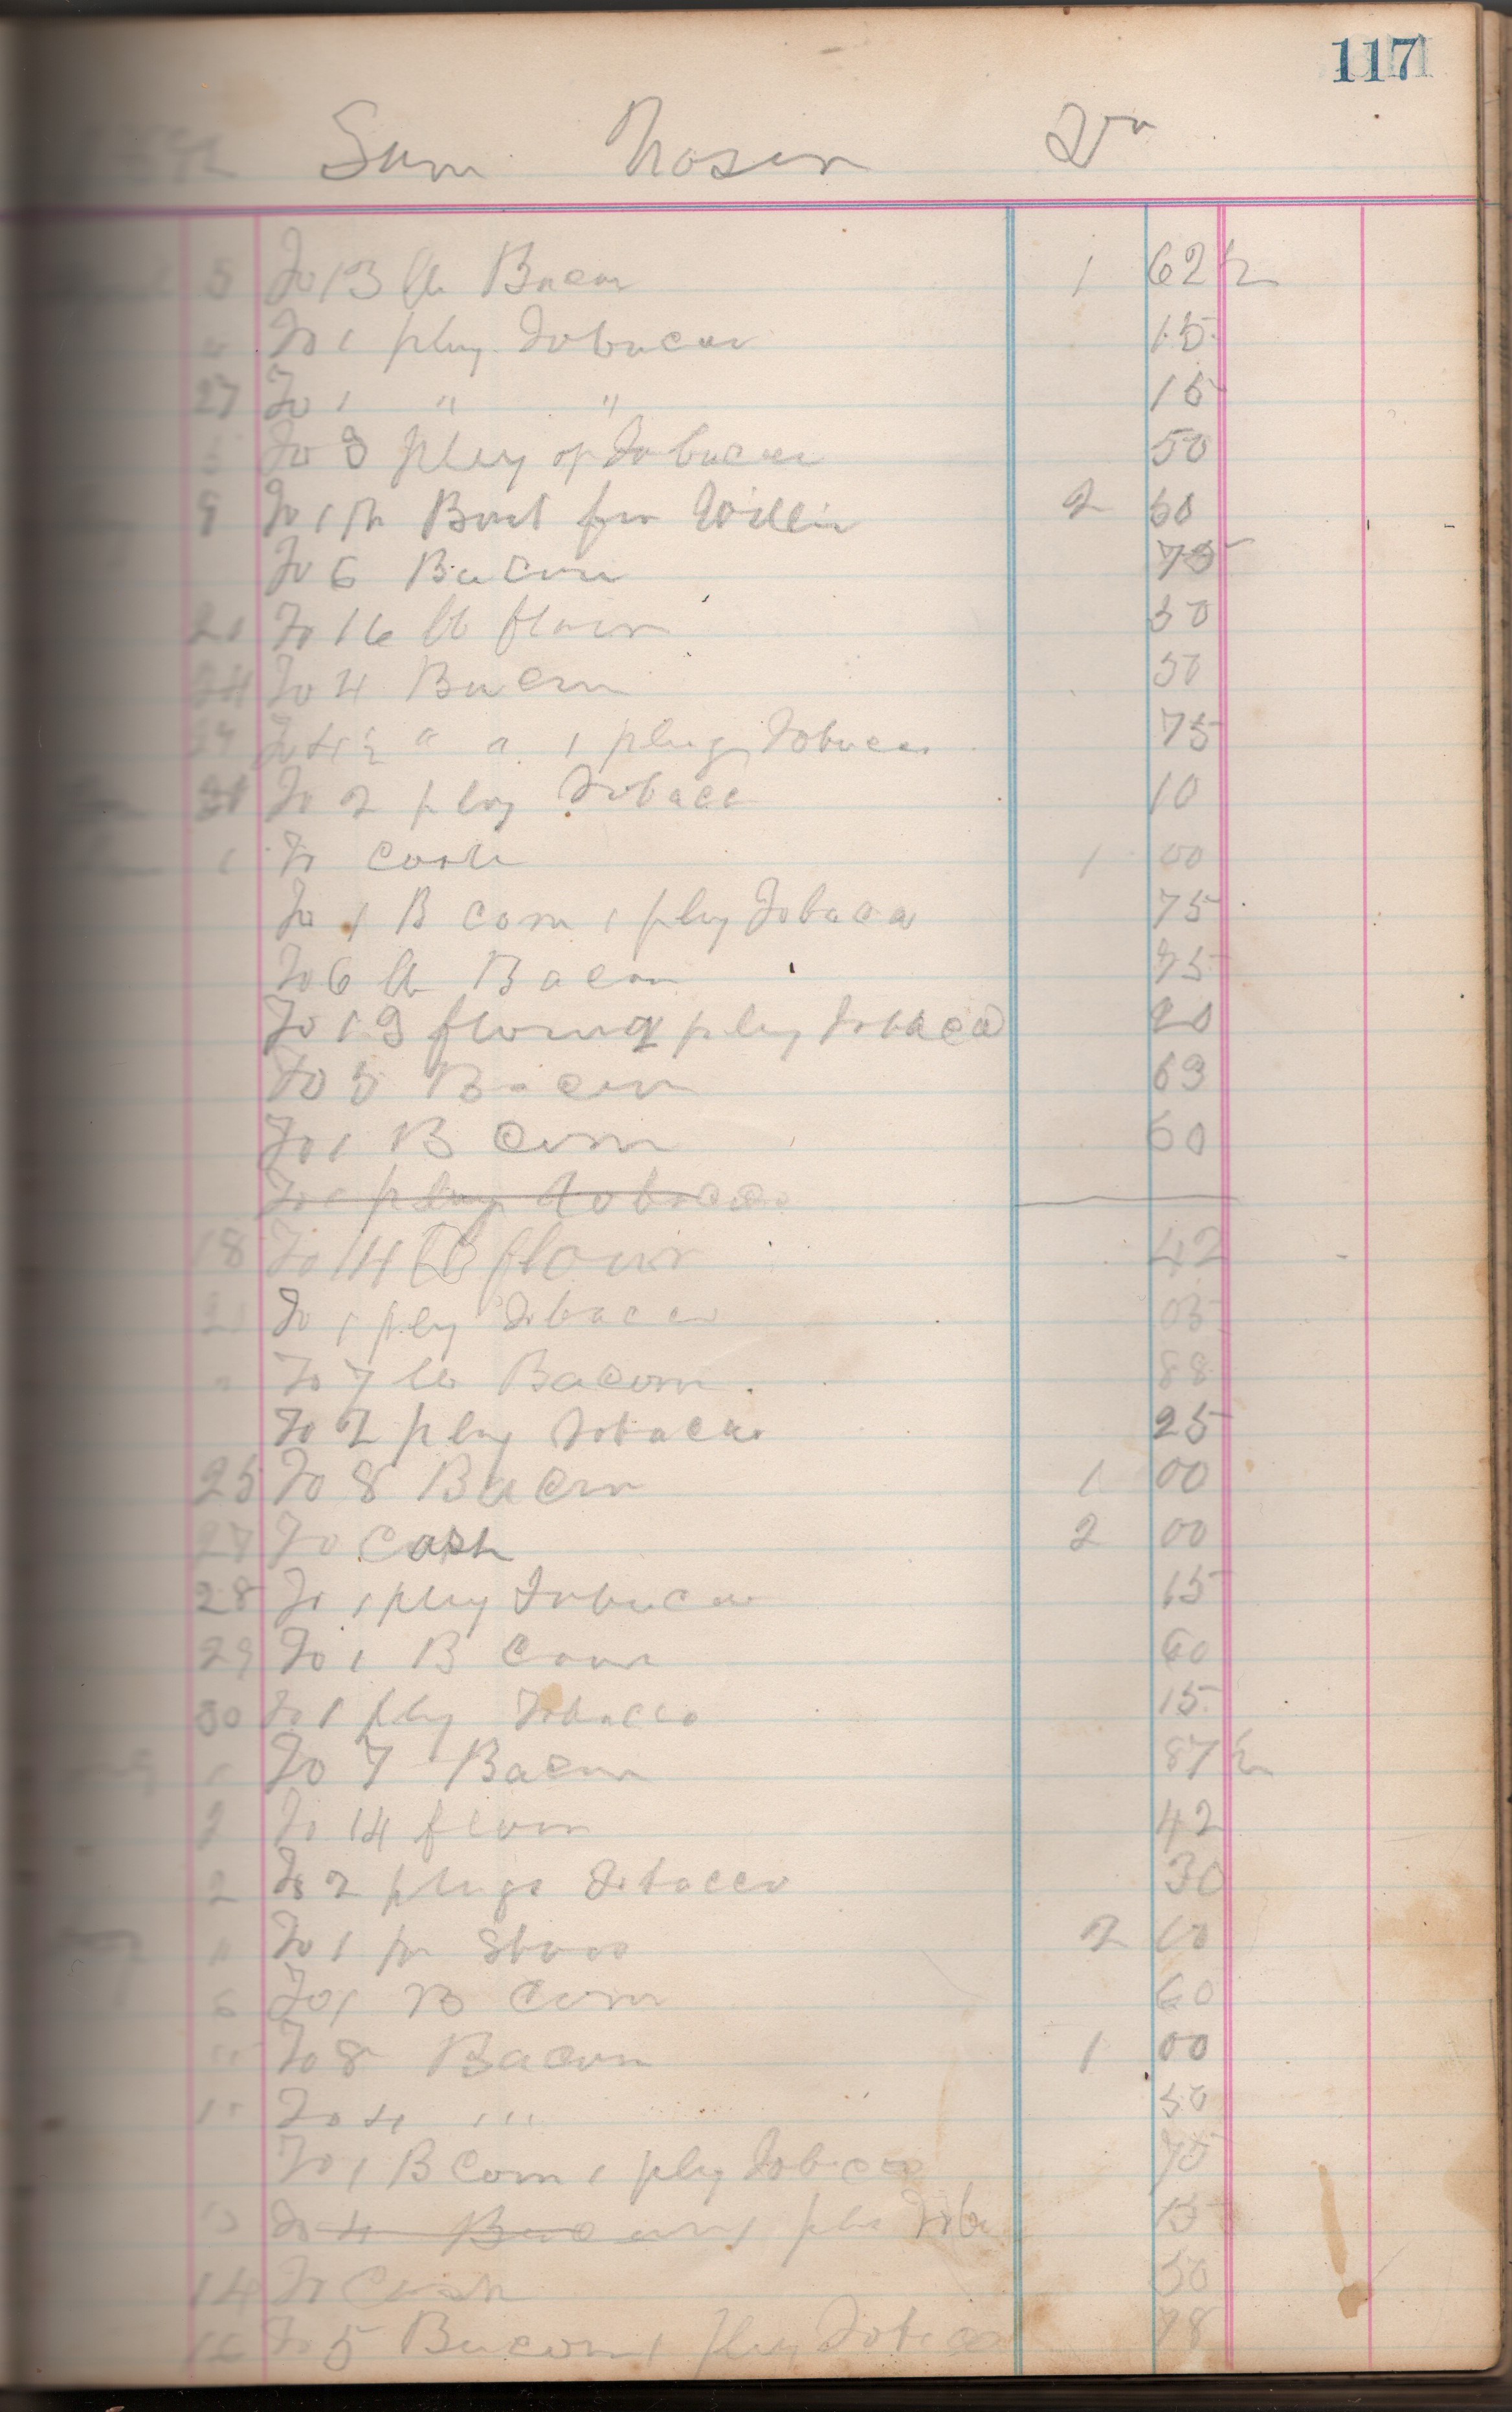 117
Sam Moser Dr
5 To 13 lb Bacon 1 62 1/2
" To 1 plug Tobacco 15
27 To 1 " " 15
To 3 plug of Tobacco 50
9 To 1 pr Boot for Willie 2 50
To 6 Bacon 75
20 To 16 lb flour 50
24 To 4 Bacon 50
29 " " 1 plug Tobacco 75
31 To 2 plug Tobacc 10
1 To Cash 1 00
To 1 B corn 1 plug Tobacco 75
To 6 lb Bacon 75
To 13 flour 2 plug tobacco
To 5 Bacon 63
To 1 B Corn 60
To 1 plug tobacco
18 To 14 lb flour 42
To 1 plug Tobacco 05
" To 7 lb Bacon 88
To 2 plug Tobacco 25
25 To 8 Bacon 1 00
27 To Cash 2 00
28 To 1 plug Tobacco 15
29 To 1 B Corn 60
30 To 1 plug Tobacco 15
1 To 7 Bacon 87 1/2
2 To 14 flour 42
2 To 2 plugs Tobacco 30
" To 1 pr Shoes 2
6 To 1 B Corn 60
" To 8 Bacon 1 00
" To 4 " 50
To 1 B Corn 1 plug Tobacco 75
To 4 Bacon 1 plu Toba 15
14 To Cash 50
To 5 Bacon 1 plug Tobacco 78